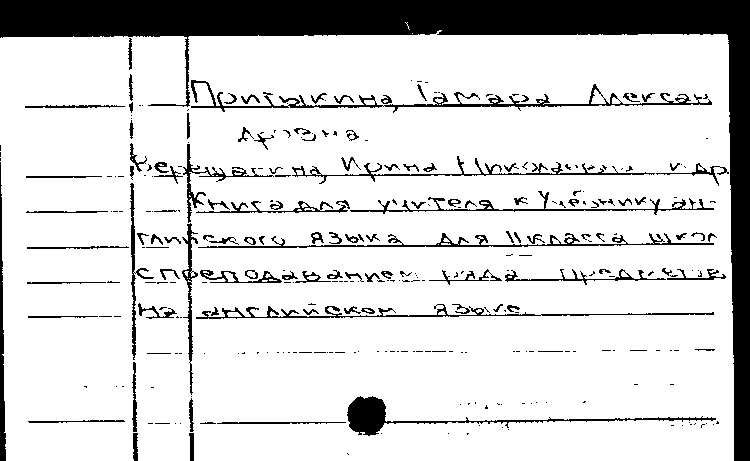 Притыкина, Тамара Алексан
дровна.
Верещагина, Ирина Николаевна и др
Книга для учителя к учебнику ан-
глийского языка для II класса школ
с преподаванием ряда предметов
на английском языке.